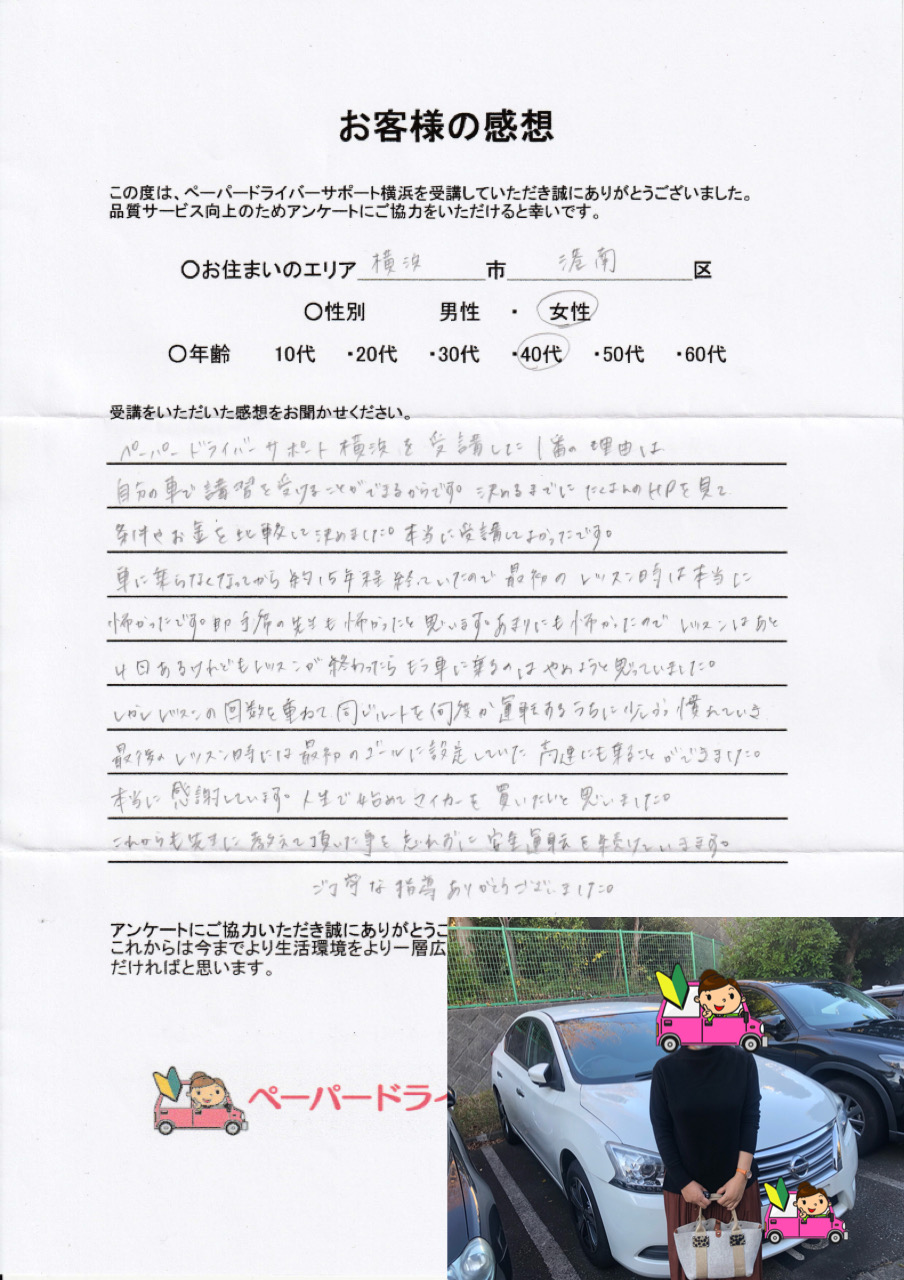 お客様の感想
この度は、ペーパードライバーサポート横浜を受講していただき誠にありがとうございました。
品質サービス向上のためアンケートにご協力をいただけると幸いです。
〇お住まいのエリア 横浜 市 港南 区
〇性別 男性 ・ 女性
〇年齢 10代 ・20代 ・30代 ・40代 ・50代 ・60代
受講をいただいた感想をお聞かせください。
ペーパードライバーサポート横浜を受講した1番の理由は
自分の車で講習を受けることができるからです。決めるまでにたくさんのHPを見て
条件やお金を比較して決めました。本当に受講してよかったです。
車に乗らなくなってから約15年程経っていたので最初のレッスン時は本当に
怖かったです。助手席の先生も怖かったと思います。あまりにも怖かったのでレッスンはあと
4日あるけれどもレッスンが終わったらもう車に乗るのはやめようと思っていました。
しかしレッスンの回数を重ねて同じルートを何度か運転するうちに少しずつ慣れていき
最後のレッスン時には最初のゴールに設定していた高速にも乗ることができました。
本当に感謝しています。人生で始めてマイカーを買いたいと思いました。
これからも先生に教えて頂いた事を忘れずに安全運転を続けていきます。
ご丁寧な指導ありがとうございました。
アンケートにご協力いただき誠にありがとうご
これからは今までより生活環境をより一層広
だければと思います。
ペーパードライ